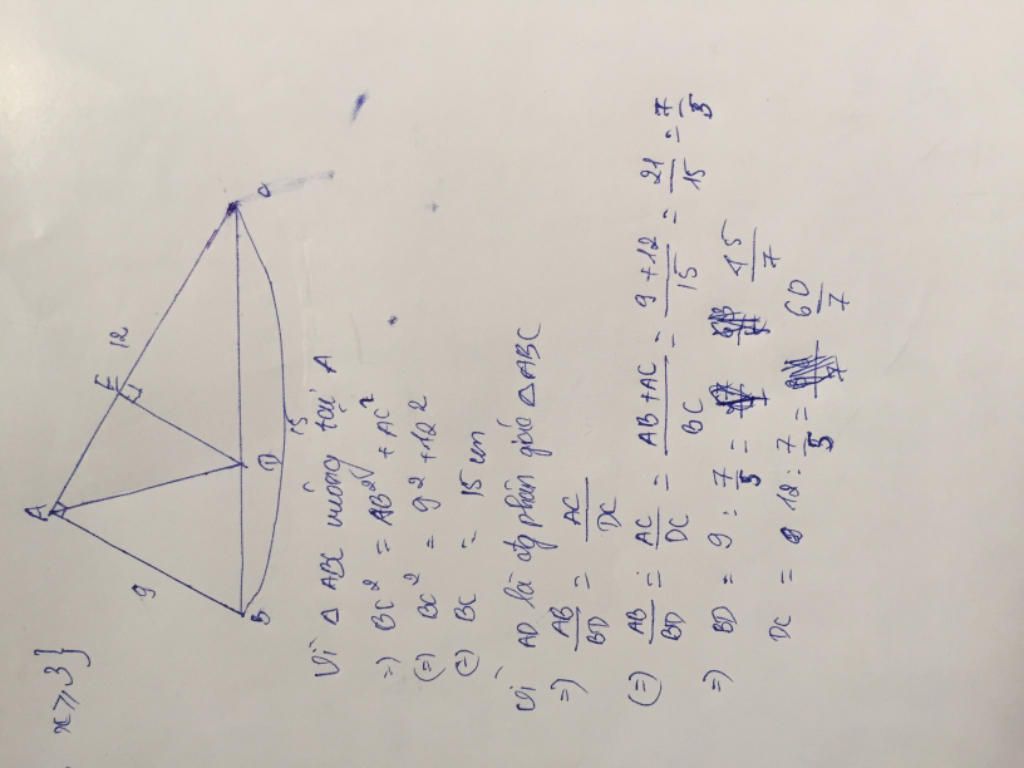 x ≥ 3}
A
9
E
12
B
D
C
15
Vì Δ ABC vuông tại A
=) BC² = AB² + AC²
(=) BC² = 9² + 12²
(=) BC = 15 cm
Vì AD là đg phân giác Δ ABC
=) AB/BD = AC/DC
(=) AB/BD = AC/DC = AB + AC/BC = 9 + 12/15 = 21/15 = 7/5
=) BD = 9 : 7/5 = 45/7
DC = 12 : 7/5 = 60/7